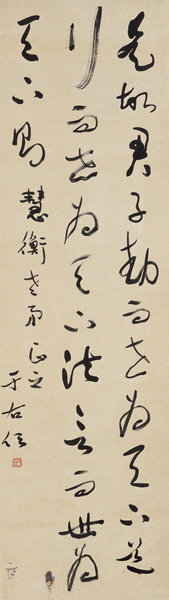 是故君子動而世為天下道
行而世為天下法言而世為
天下則
慧衡老弟正之
于右任